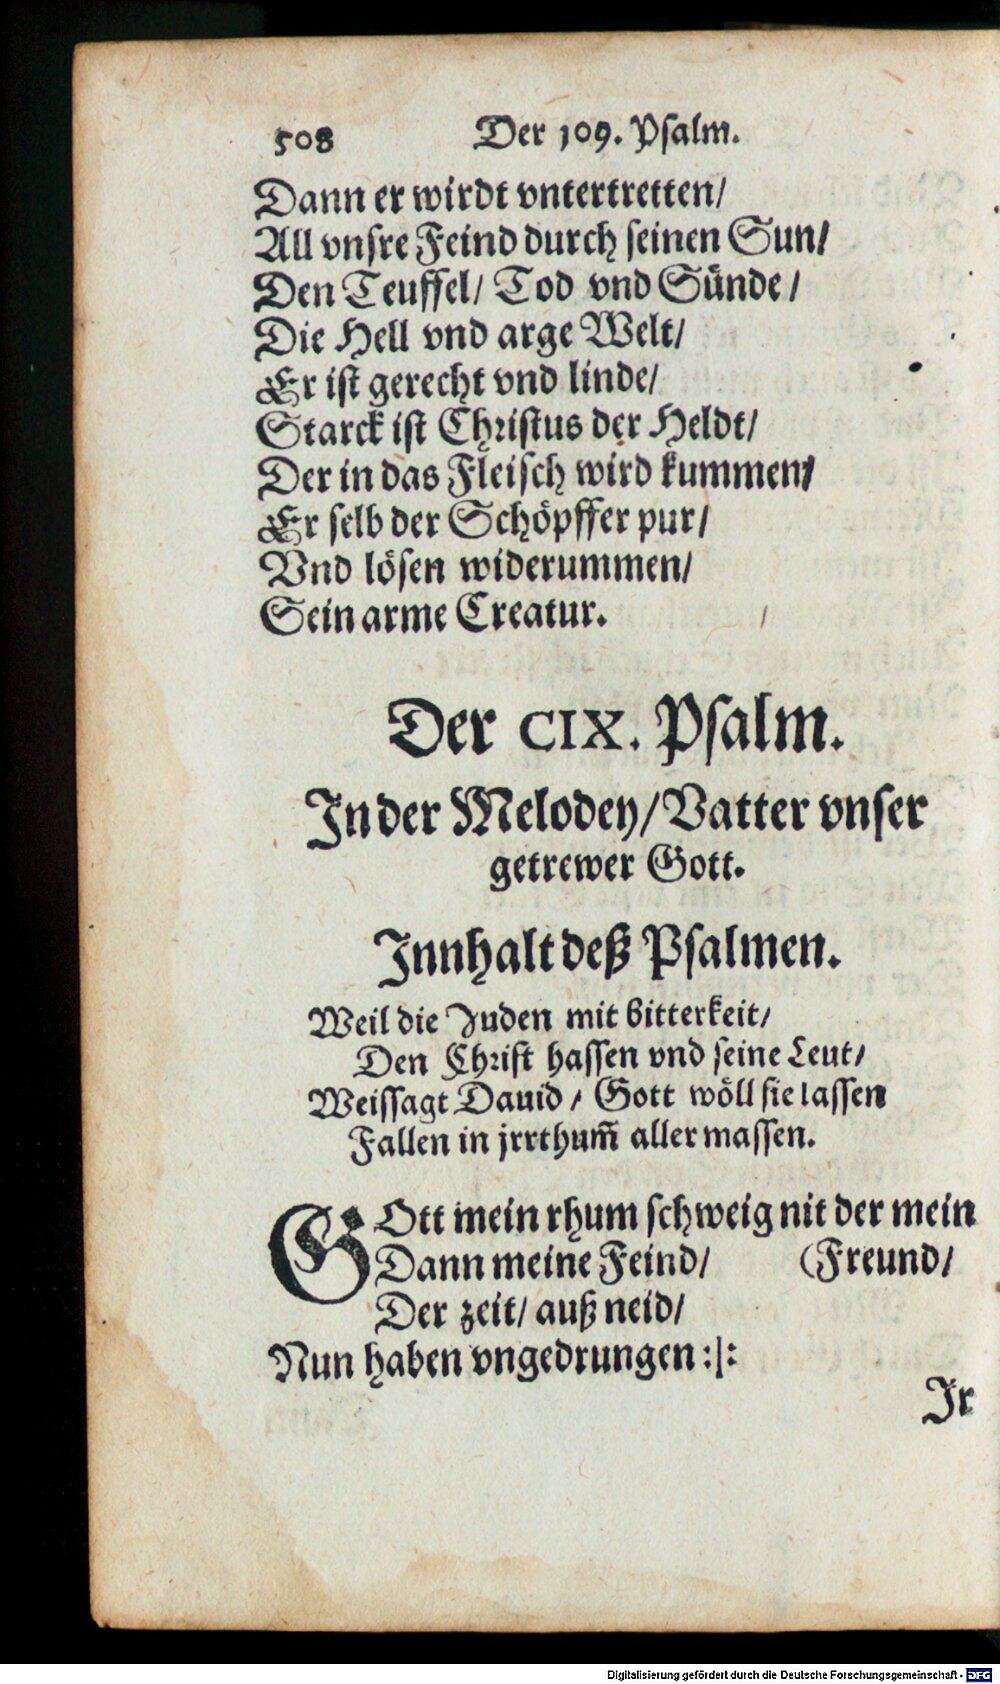 508 Der 109. Psalm.
Dann er wirdt vntertretten/
All vnsre Feind durch seinen Sun/
Den Teuffel/ Tod vnd Sünde/
Die Hell vnd arge Welt/
Er ist gerecht vnd linde/
Starck ist Christus der Heldt/
Der in das Fleisch wird kummen/
Er selb der Schöpffer pur/
Vnd lösen widerummen/
Sein arme Creatur.
Der CIX. Psalm.
In der Melodey/ Vatter vnser
getrewer Gott.
Innhalt deß Psalmen.
Weil die Juden mit bitterkeit/
Den Christ hassen vnd seine Leut/
Weissagt Dauid/ Gott wöll sie lassen
Fallen in jrrthum̃ aller massen.
GOtt mein rhum schweig nit der mein
Dann meine Feind/ (Freund/
Der zeit/ auß neid/
Nun haben vngedrungen :|:
Jr
Digitalisierung gefördert durch die Deutsche Forschungsgemeinschaft - DFG